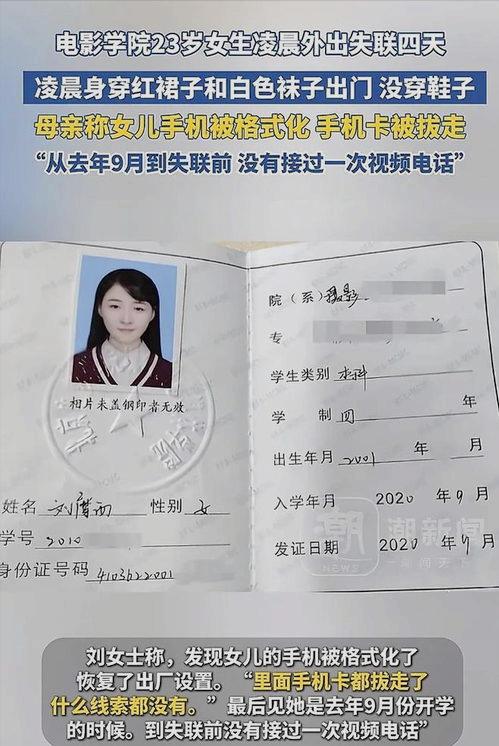 电影学院23岁女生凌晨外出失联四天
凌晨身穿红裙子和白色袜子出门 没穿鞋子
母亲称女儿手机被格式化 手机卡被拔走
“从去年9月到失联前 没有接过一次视频电话”
相片未盖钢印者无效
姓名 刘 性别 女
学号 2010
身份证号码 4103622001
院(系) 摄影
专
学生类别 本科
学 制 四 年
出生年月 2001 年 月
入学年月 2020 年 9 月
发证日期 2020 年 9 月
潮 潮新闻
刘女士称,发现女儿的手机被格式化了
恢复了出厂设置。“里面手机卡都拔走了
什么线索都没有。”最后见她是去年9月份开学
的时候。到失联前没有接过一次视频电话”